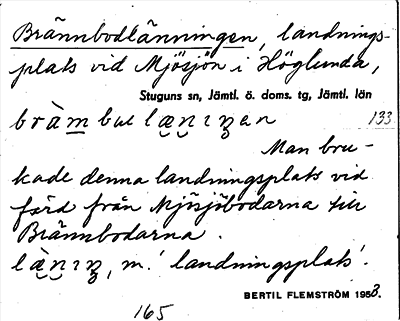 Brännbodlänningen, landnings-
plats vid Mjösjön i Höglunda,
Stuguns sn, Jämtl. ö. doms. tg, Jämtl. län
133
Man bru-
kade denna landningsplats vid
färd från Mjösjöbodarna till
Brännbodarna.
m. 'landningsplats'.
BERTIL FLEMSTRÖM 1958.
165